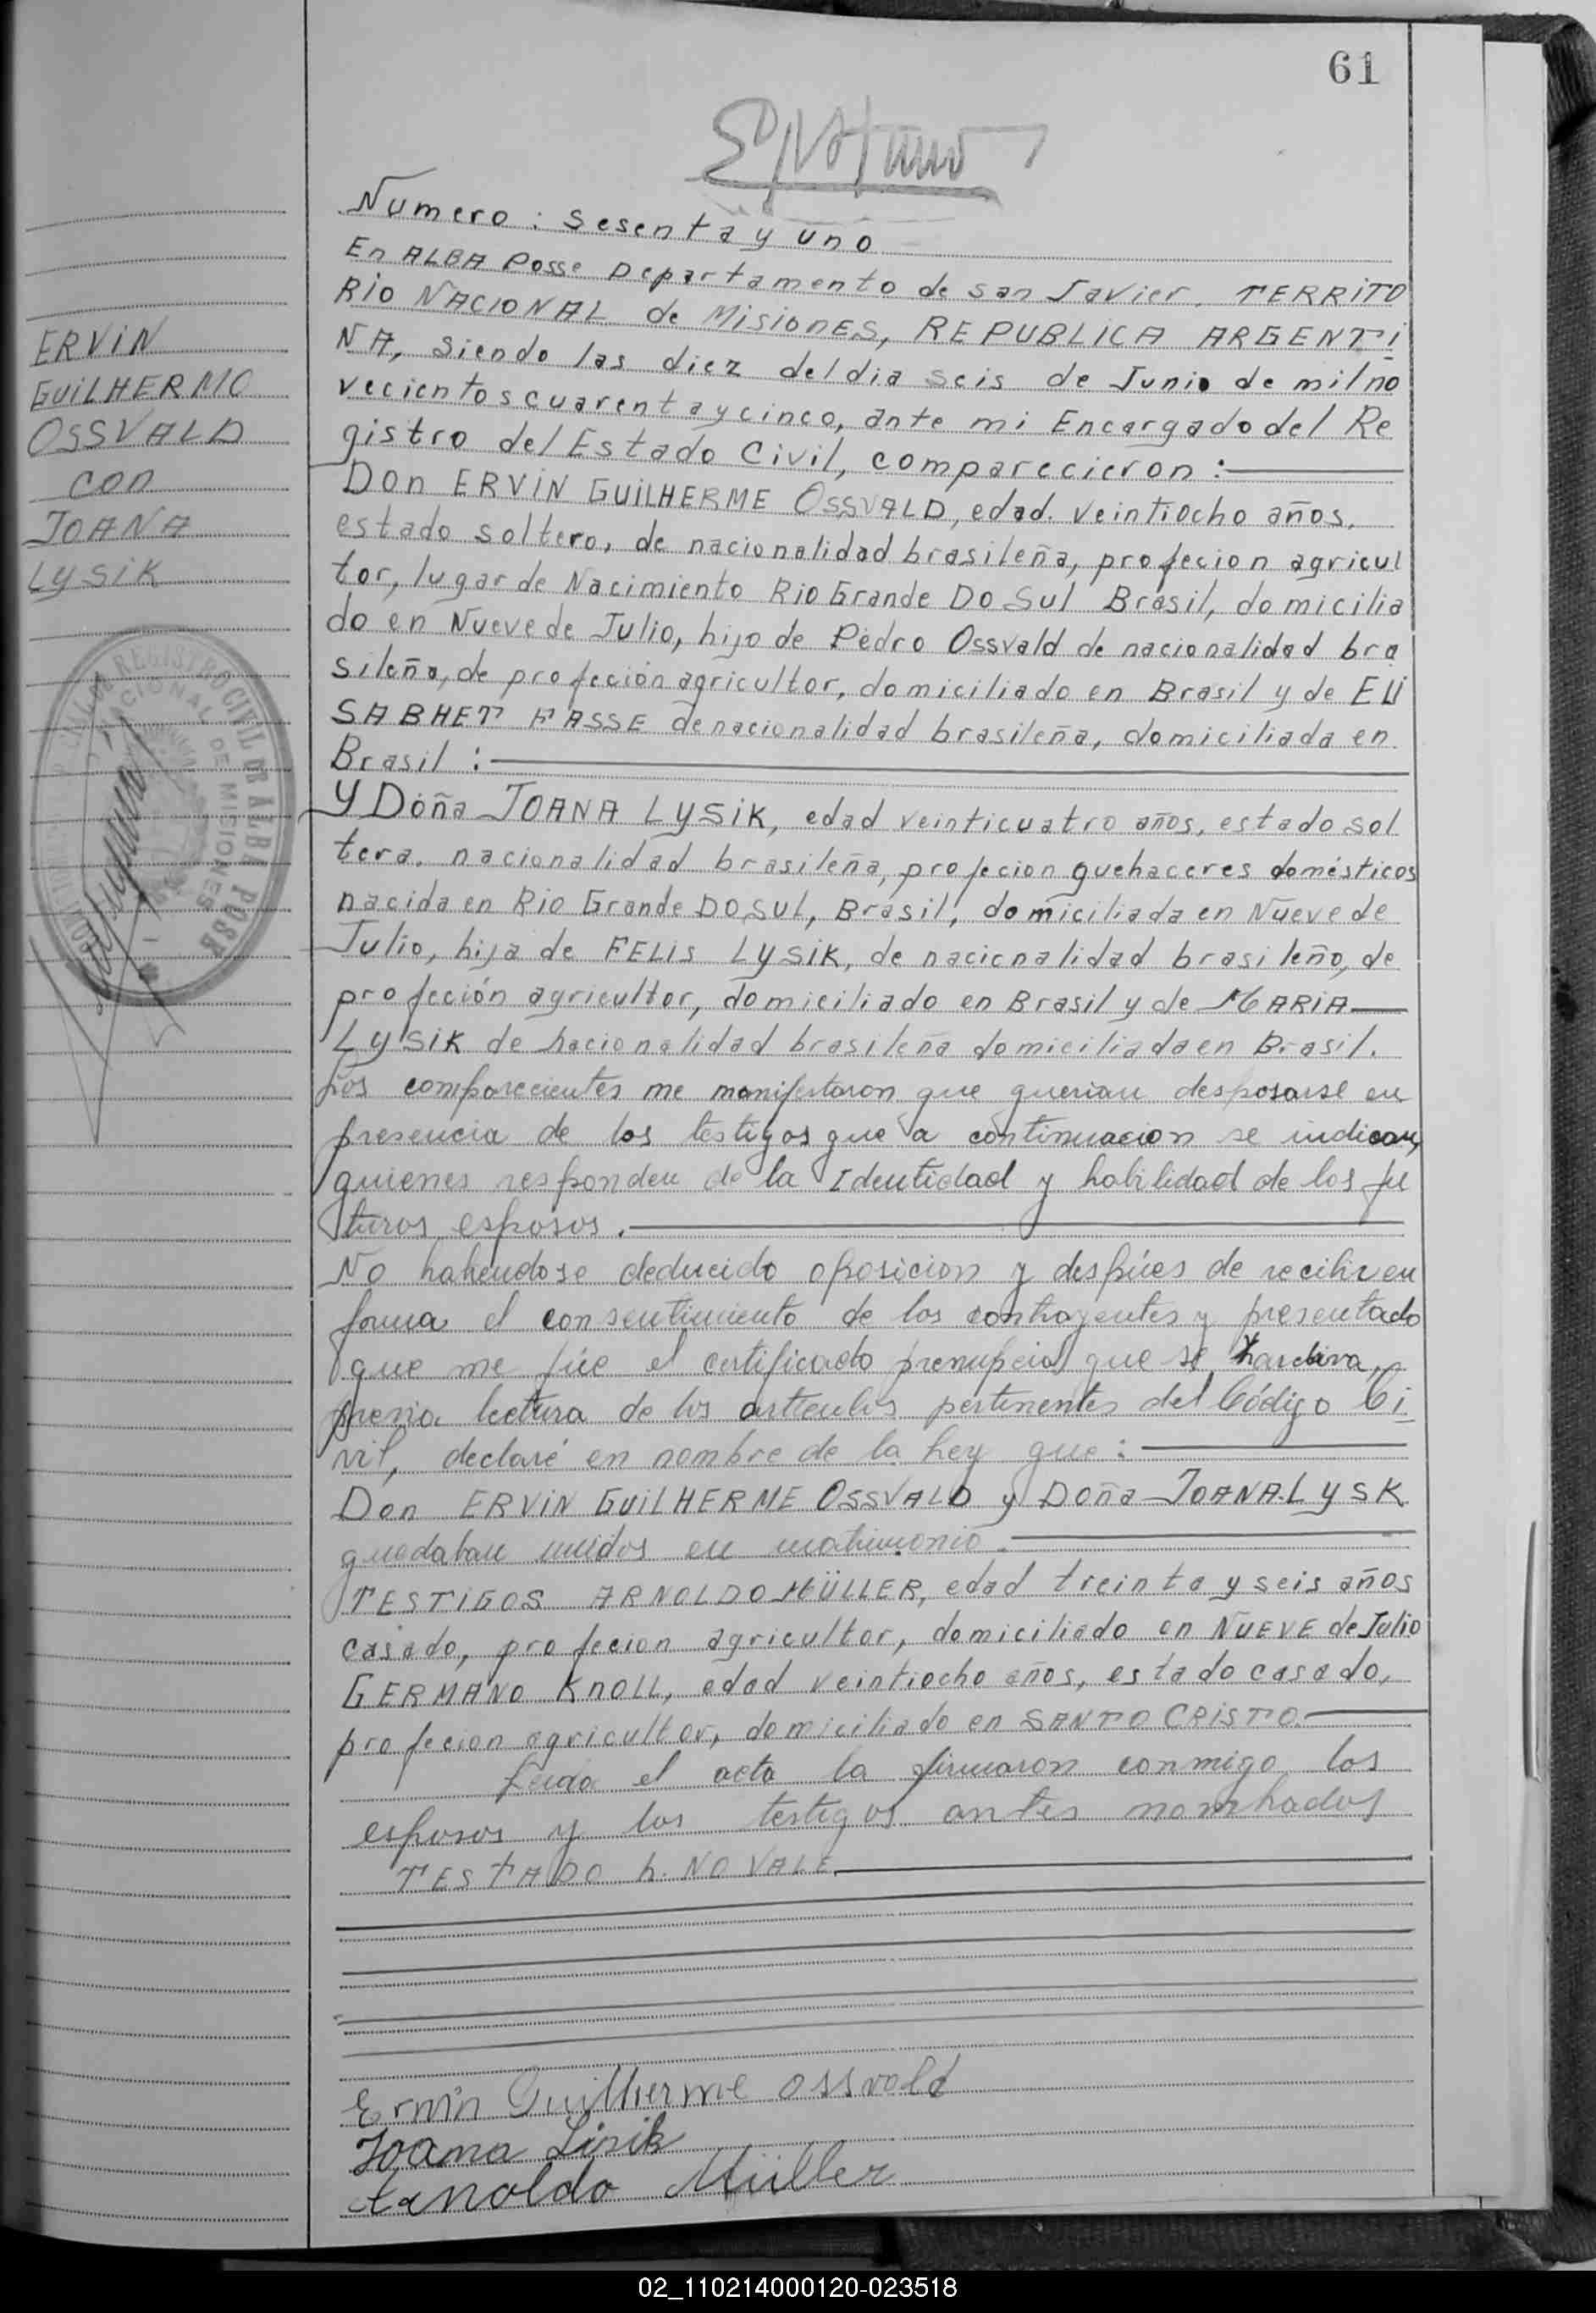 61
Numero: Sesenta y uno
En ALBA Posse Departamento de San Javier. TERRITO
RIO NACIONAL de MISIONES, REPUBLICA ARGENTI
NA, siendo las diez del dia seis de Junio de mil no
vecientos cuarenta y cinco, ante mi Encargado del Re
gistro del Estado Civil, comparecieron:
ERVIN
GUILHERMO
OSSVALD
con
JOANA
LYSIK
Don ERVIN GUILHERME OSSVALD, edad. veintiocho años,
estado soltero, de nacionalidad brasileña, profecion agricul
tor, lugar de Nacimiento Rio Grande Do Sul Brasil, domicilia
do en Nueve de Julio, hijo de Pedro Ossvald de nacionalidad bra
sileña, de profeción agricultor, domiciliado en Brasil y de ELI
SABHET FASSE de nacionalidad brasileña, domiciliada en
Brasil:
Y Doña JOANA LYSIK, edad veinticuatro años, estado sol
tera, nacionalidad brasileña, profecion quehaceres domésticos
nacida en Rio Grande DO SUL, Brasil, domiciliada en Nueve de
Julio, hija de FELIS LYSIK, de nacionalidad brasileño, de
profeción agricultor, domiciliado en Brasil y de MARIA
LYSIK de nacionalidad brasileña domiciliada en Brasil.
REGISTRO CIVIL DE ALBA POSSE
NACIONAL DE MISIONES
Los comparecientes me manifestaron que querian desposarse en
presencia de los testigos que a continuacion se indican,
quienes responden de la Identidad y habilidad de los fu
turos esposos.
No habiendose deducido oposicion y despúes de recibir en
forma el consentimiento de los contrayentes y presentado
que me fúe el certificado prenupcial que se archiva,
previa lectura de los articulos pertinentes del Código Ci
vil, declaré en nombre de la Ley que:
Don ERVIN GUILHERME OSSVALD y Doña JOANA LYSK
quedaban unidos en matrimonio.
TESTIGOS ARNOLDO MÜLLER, edad treinta y seis años
casado, profecion agricultor, domiciliado en NUEVE de Julio
GERMANO KNOLL, edad veintiocho años, estado casado,
profecion agricultor, domiciliado en SANTO CRISTO.
Leida el acta la firmaron conmigo los
esposos y los testigos antes nombrados
TESTADO h. NO VALE.
Ervin Guilherme Ossvald
Joana Lisik
Arnoldo Müller
02_110214000120-023518